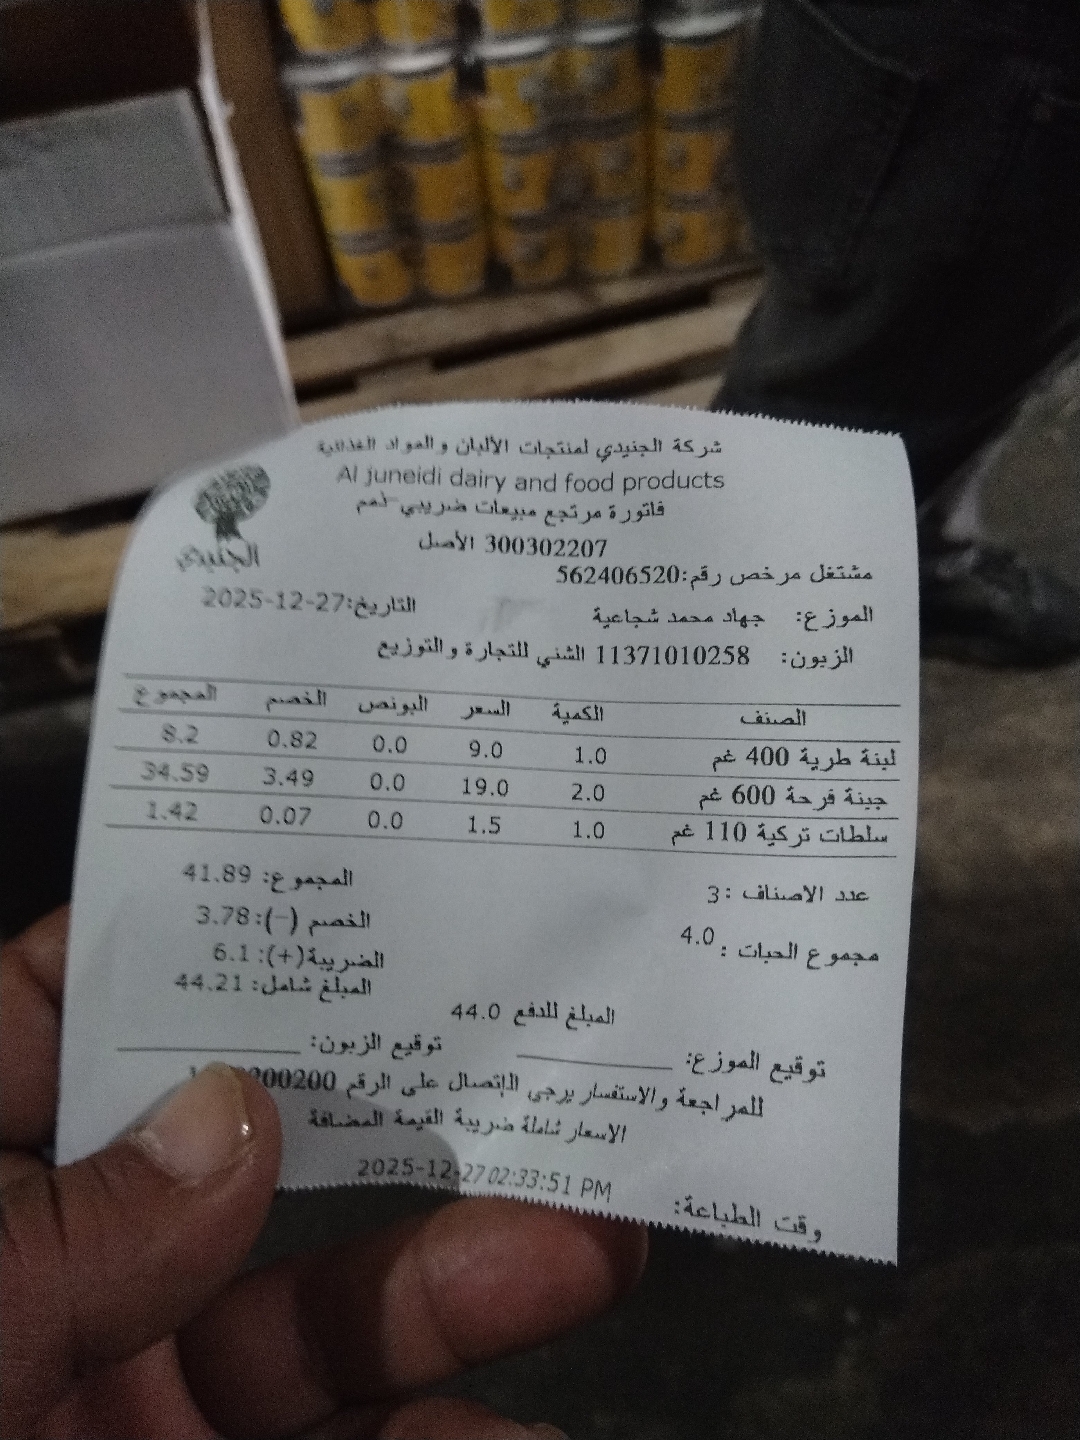 شركة الجنيدي لمنتجات الألبان والمواد الغذائية
Al juneidi dairy and food products
الجنيدي
فاتورة مرتجع مبيعات ضريبي
300302207 الأصل
مشتغل مرخص رقم:562406520
الموزع: جهاد محمد شجاعية التاريخ:2025-12-27
الزبون: 11371010258 الشني للتجارة والتوزيع
الصنف الكمية السعر البونص الخصم المجموع
لبنة طرية 400 غم 1.0 9.0 0.0 0.82 8.2
جبنة فرحة 600 غم 2.0 19.0 0.0 3.49 34.59
سلطات تركية 110 غم 1.0 1.5 0.0 0.07 1.42
عدد الاصناف :3 المجموع: 41.89
مجموع الحبات : 4.0 الخصم (-):3.78
الضريبة(+): 6.1
المبلغ شامل: 44.21
المبلغ للدفع 44.0
توقيع الموزع: توقيع الزبون:
للمراجعة والاستفسار يرجى الإتصال على الرقم
الاسعار شاملة ضريبة القيمة المضافة
وقت الطباعة: 2025-12-27 02:33:51 PM